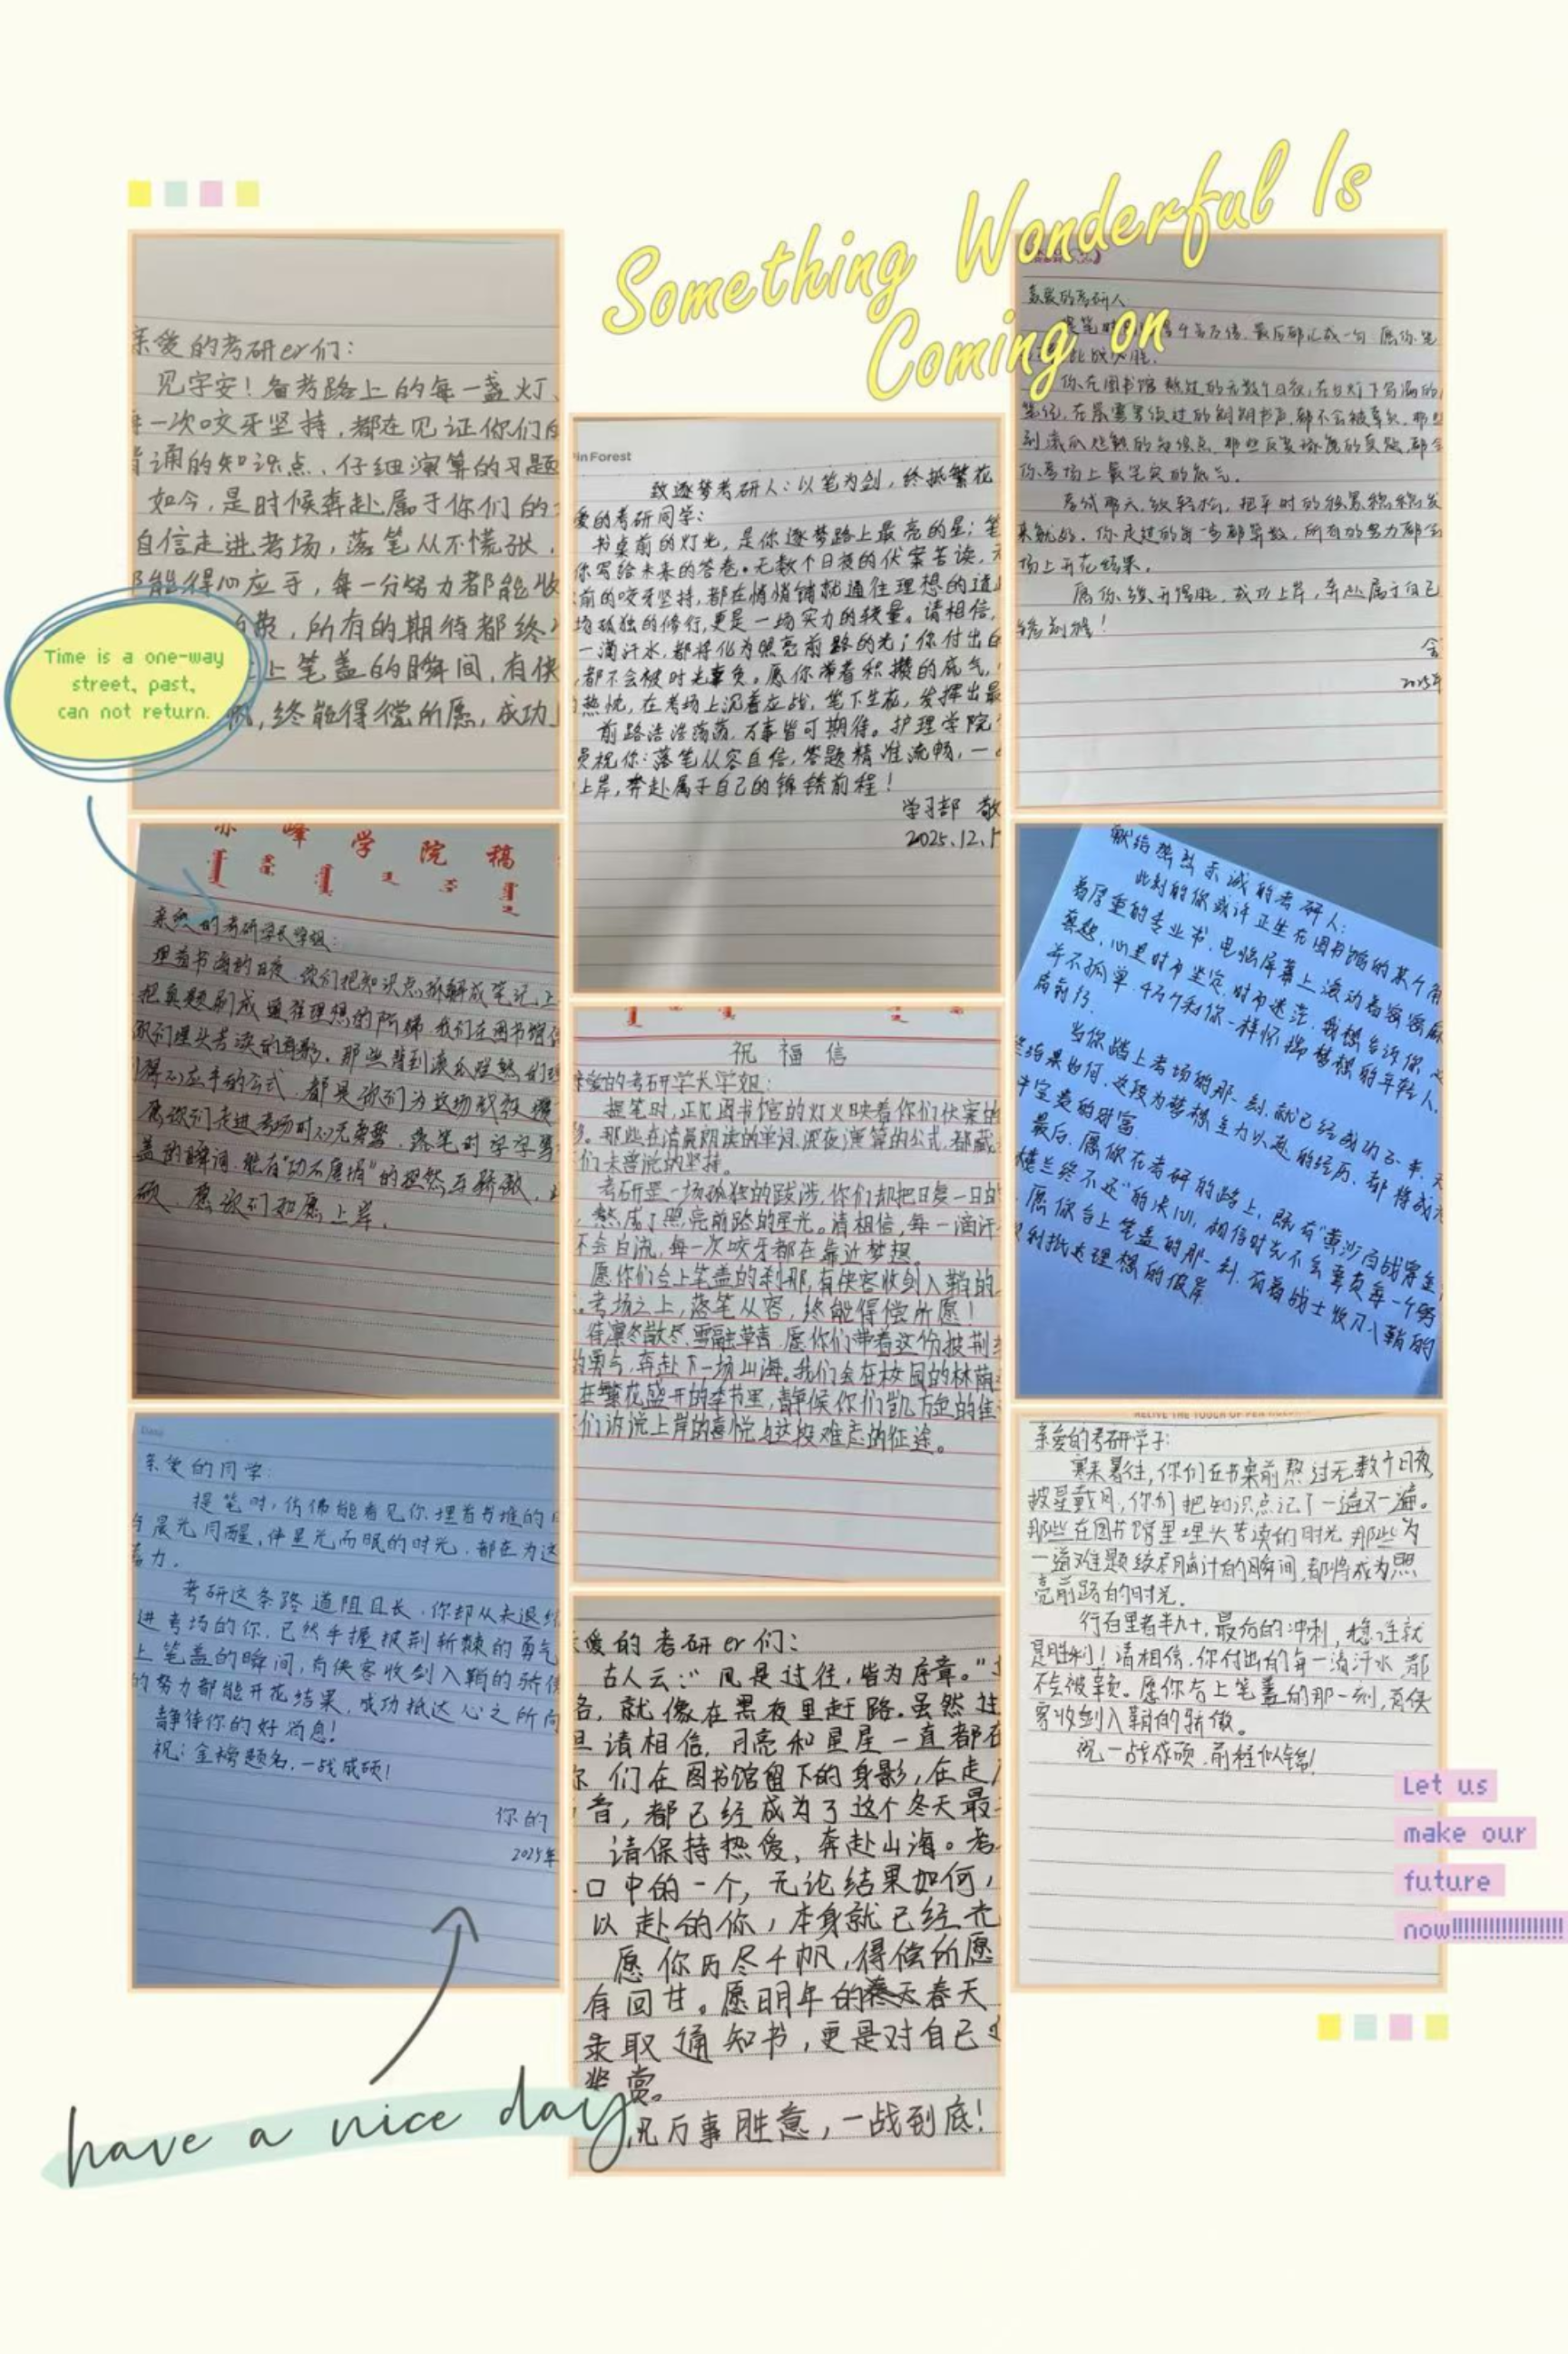 Something Wonderful Is
Coming on
亲爱的考研er们:
见字安!备考路上的每一盏灯、
一次咬牙坚持,都在见证你们的
诵的知识点、仔细演算的习题
如今,是时候奔赴属于你们的
自信走进考场,落笔从不慌张,
能得心应手,每一分努力都能收
所有的期待都终
上笔盖的瞬间,有侠
终能得偿所愿,成功
Time is a one-way
street, past,
can not return.
赤峰学院稿
亲爱的考研学长学姐:
埋首书海的日夜,你们把知识点拆解成笔记,
把真题刷成通往理想的阶梯,我们在图书馆
你们埋头苦读的身影,那些背到滚瓜烂熟的
得心应手的公式,都是你们为这场战役
愿你们走进考场时心无旁骛,落笔时字字
盖的瞬间,能有“功不唐捐”的坦然与骄傲,
硕,愿你们如愿上岸。
亲爱的同学:
提笔时,仿佛能看见你埋首书堆的
与晨光同醒,伴星光而眠的时光,都在为这
蓄力。
考研这条路道阻且长,你却从未退
进考场的你,已然手握披荆斩棘的勇气
上笔盖的瞬间,有侠客收剑入鞘的骄傲
的努力都能开花结果,成功抵达心之所向
静待你的好消息!
祝:金榜题名,一战成硕!
你的
2025年
have a nice day
in Forest
致逐梦考研人:以笔为剑,终抵繁花
爱的考研同学:
书桌前的灯光,是你逐梦路上最亮的星;笔
你写给未来的答卷。无数个日夜的伏案苦读,
前的咬牙坚持,都在悄悄铺就通往理想的道
场孤独的修行,更是一场实力的较量。请相信,
一滴汗水,都将化为照亮前路的光;你付出的
都不会被时光辜负。愿你带着积攒的底气,
热忱,在考场上沉着应战,笔下生花,发挥出最
前路浩浩荡荡,万事皆可期待。护理学院
员祝你:落笔从容自信,答题精准流畅,一
上岸,奔赴属于自己的锦绣前程!
学习部 敬
2025.12.1
祝福信
亲爱的考研学长学姐:
提笔时,正见图书馆的灯火映着你们伏案的
。那些在清晨朗读的单词、深夜演算的公式,都藏
们未曾说的坚持。
考研是一场孤独的跋涉,你们却把日复一日的
,熬成了照亮前路的星光。请相信,每一滴汗
不会白流,每一次咬牙都在靠近梦想。
愿你们合上笔盖的刹那,有侠客收剑入鞘的
。考场之上,落笔从容,终能得偿所愿!
待凛冬散尽,雪融草青,愿你们带着这份披荆
的勇气,奔赴下一场山海。我们会在校园的林荫
在繁花盛开的季节里,静候你们凯旋的佳
们诉说上岸的喜悦与这段难忘的征途。
爱的考研er们:
古人云:“凡是过往,皆为序章。”
路,就像在黑夜里赶路。虽然
但请相信,月亮和星星一直都在
你们在图书馆留下的身影,在走
音,都已经成为了这个冬天最
请保持热爱,奔赴山海。考
口中的一个,无论结果如何,
以赴的你,本身就已经
愿你历尽千帆,得偿所愿
有回甘。愿明年的春天
录取通知书,更是对自己
奖赏。
祝万事胜意,一战到底!
亲爱的考研人
最后都汇成一句:愿你
此战必胜。
你在图书馆熬过的无数个日夜,在台灯下写满的
笔记,在晨雾里读过的朗朗书声,都不会被辜负。那些
到滚瓜烂熟的知识点,那些反复琢磨的真题,都会
你考场上最坚实的底气。
考试那天,放轻松,把平时的积累稳稳发
来就好。你走过的每一步都算数,所有的努力都会
场上开花结果。
愿你旗开得胜,成功上岸,奔赴属于自己
锦绣前程!
2025年
献给热烈赤诚的考研人:
此刻的你或许正坐在图书馆的某个角
着厚重的专业书,电脑屏幕上滚动着密密麻
真题,心里时而坚定,时而迷茫。我想告诉你,
并不孤单,4万个和你一样怀揣梦想的年轻人,
肩前行
当你踏上考场的那一刻,就已经成功了一半,
结果如何,这段为梦想全力以赴的经历,都将成
中宝贵的财富
最后,愿你在考研的路上,既有“黄沙百战穿金
楼兰终不还”的决心,相信时光不会辜负每一个努
愿你合上笔盖的那一刻,有着战士收刀入鞘的
利抵达理想的彼岸
亲爱的考研学子:
寒来暑往,你们在书桌前熬过无数个日夜,
披星戴月,你们把知识点记了一遍又一遍。
那些在图书馆里埋头苦读的时光,那些为
一道难题绞尽脑汁的瞬间,都将成为照
亮前路的时光。
行百里者半九十,最后的冲刺,稳住就
是胜利!请相信,你付出的每一滴汗水,都
不会被辜负。愿你合上笔盖的那一刻,有侠
客收剑入鞘的骄傲。
祝一战成硕,前程似锦!
Let us
make our
future
now!!!!!!!!!!!!!!!!!!